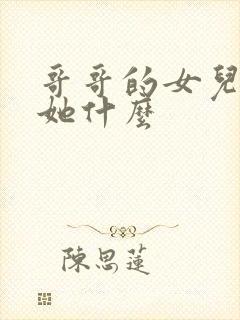 哥哥的女兒
她什麼
陳思蓮